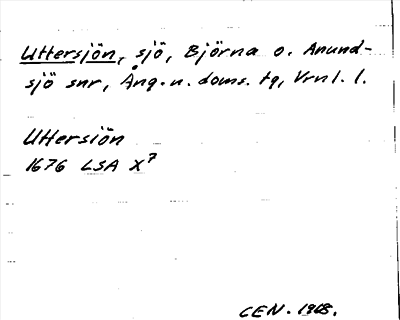 Uttersjön, sjö, Björna o. Anund-
sjö snr, Ång. n. doms. tg, Vrnl. l.
Uttersiön
1676 LSA X7
CEN. 1968.